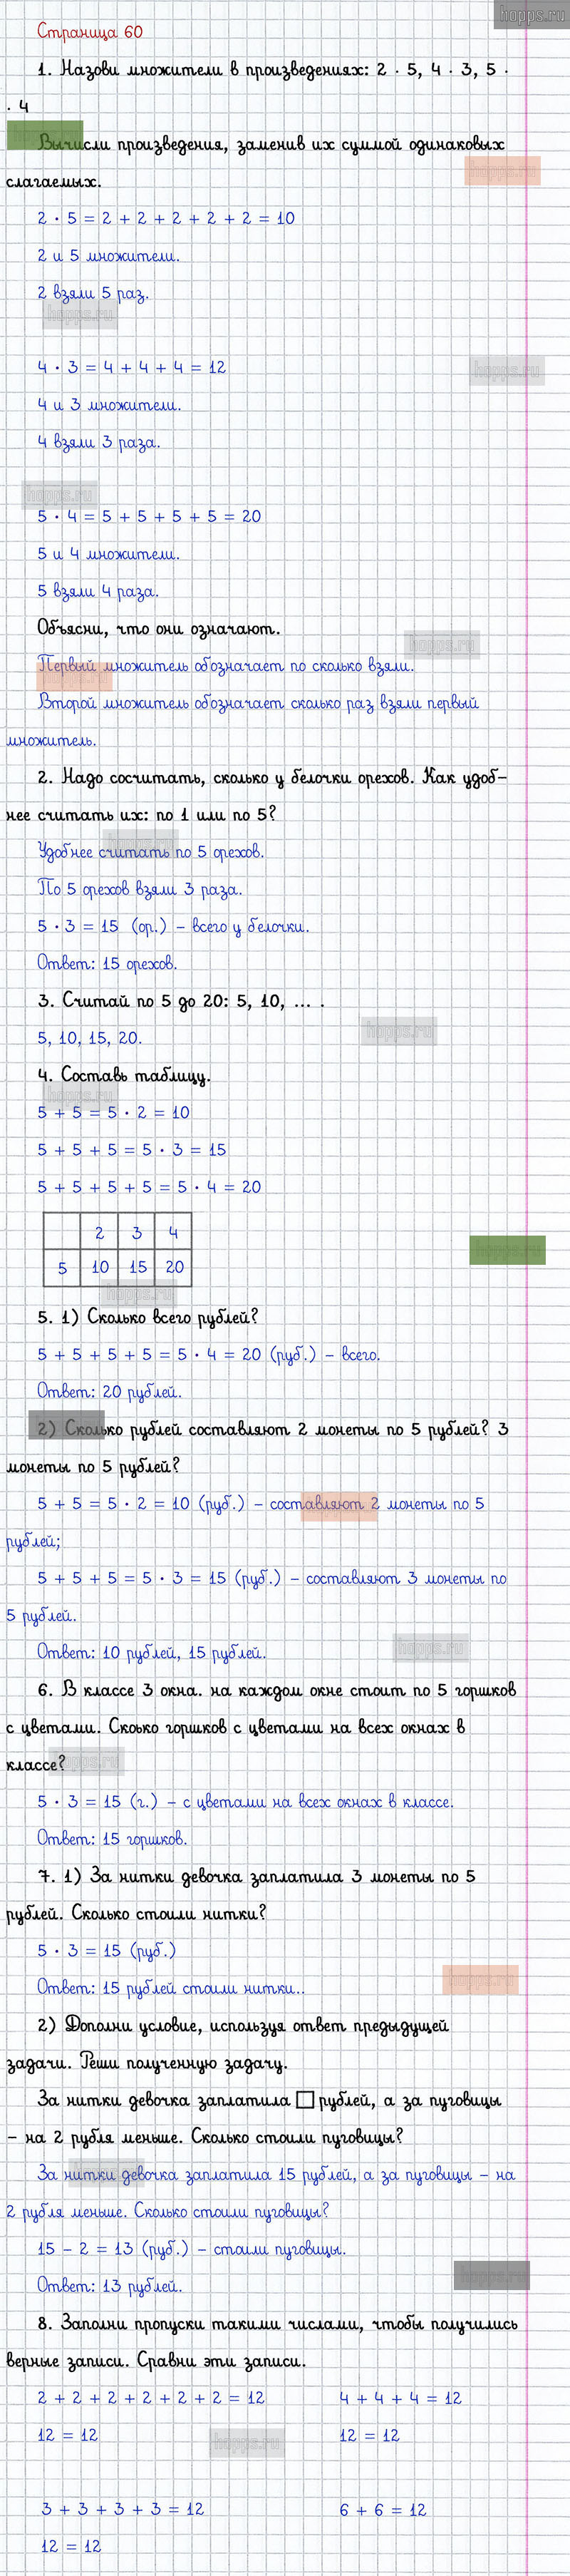 hopps.ru
Страница 60
1. Назови множители в произведениях: 2 · 5, 4 · 3, 5 ·
· 4
Вычисли произведения, заменив их суммой одинаковых
hopps.ru
слагаемых.
2 · 5 = 2 + 2 + 2 + 2 + 2 = 10
2 и 5 множители.
2 взяли 5 раз.
hopps.ru
4 · 3 = 4 + 4 + 4 = 12
hopps.ru
4 и 3 множители.
4 взяли 3 раза.
hopps.ru
5 · 4 = 5 + 5 + 5 + 5 = 20
5 и 4 множители.
5 взяли 4 раза.
Объясни, что они означают.
hopps.ru
Первый множитель обозначает по сколько взяли.
Второй множитель обозначает сколько раз взяли первый
множитель.
2. Надо сосчитать, сколько у белочки орехов. Как удоб-
нее считать их: по 1 или по 5?
Удобнее считать по 5 орехов.
По 5 орехов взяли 3 раза.
5 · 3 = 15 (ор.) – всего у белочки.
Ответ: 15 орехов.
3. Считай по 5 до 20: 5, 10, ... .
hopps.ru
5, 10, 15, 20.
4. Составь таблицу.
hopps.ru
5 + 5 = 5 · 2 = 10
5 + 5 + 5 = 5 · 3 = 15
5 + 5 + 5 + 5 = 5 · 4 = 20
2 3 4
hopps.ru
5 10 15 20
hopps.ru
5. 1) Сколько всего рублей?
5 + 5 + 5 + 5 = 5 · 4 = 20 (руб.) – всего.
Ответ: 20 рублей.
2) Сколько рублей составляют 2 монеты по 5 рублей? 3
монеты по 5 рублей?
5 + 5 = 5 · 2 = 10 (руб.) – составляют 2 монеты по 5
рублей;
5 + 5 + 5 = 5 · 3 = 15 (руб.) – составляют 3 монеты по
5 рублей.
Ответ: 10 рублей, 15 рублей.
hopps.ru
6. В классе 3 окна. на каждом окне стоит по 5 горшков
с цветами. Скоько горшков с цветами на всех окнах в
классе?
hopps.ru
5 · 3 = 15 (г.) – с цветами на всех окнах в классе.
Ответ: 15 горшков.
7. 1) За нитки девочка заплатила 3 монеты по 5
рублей. Сколько стоили нитки?
5 · 3 = 15 (руб.)
hopps.ru
Ответ: 15 рублей стоили нитки..
2) Дополни условие, используя ответ предыдущей
задачи. Реши полученную задачу.
За нитки девочка заплатила □ рублей, а за пуговицы
– на 2 рубля меньше. Сколько стоили пуговицы?
За нитки девочка заплатила 15 рублей, а за пуговицы – на
2 рубля меньше. Сколько стоили пуговицы?
15 – 2 = 13 (руб.) – стоили пуговицы.
hopps.ru
Ответ: 13 рублей.
8. Заполни пропуски такими числами, чтобы получились
верные записи. Сравни эти записи.
2 + 2 + 2 + 2 + 2 + 2 = 12 4 + 4 + 4 = 12
12 = 12 12 = 12
hopps.ru
3 + 3 + 3 + 3 = 12 6 + 6 = 12
12 = 12